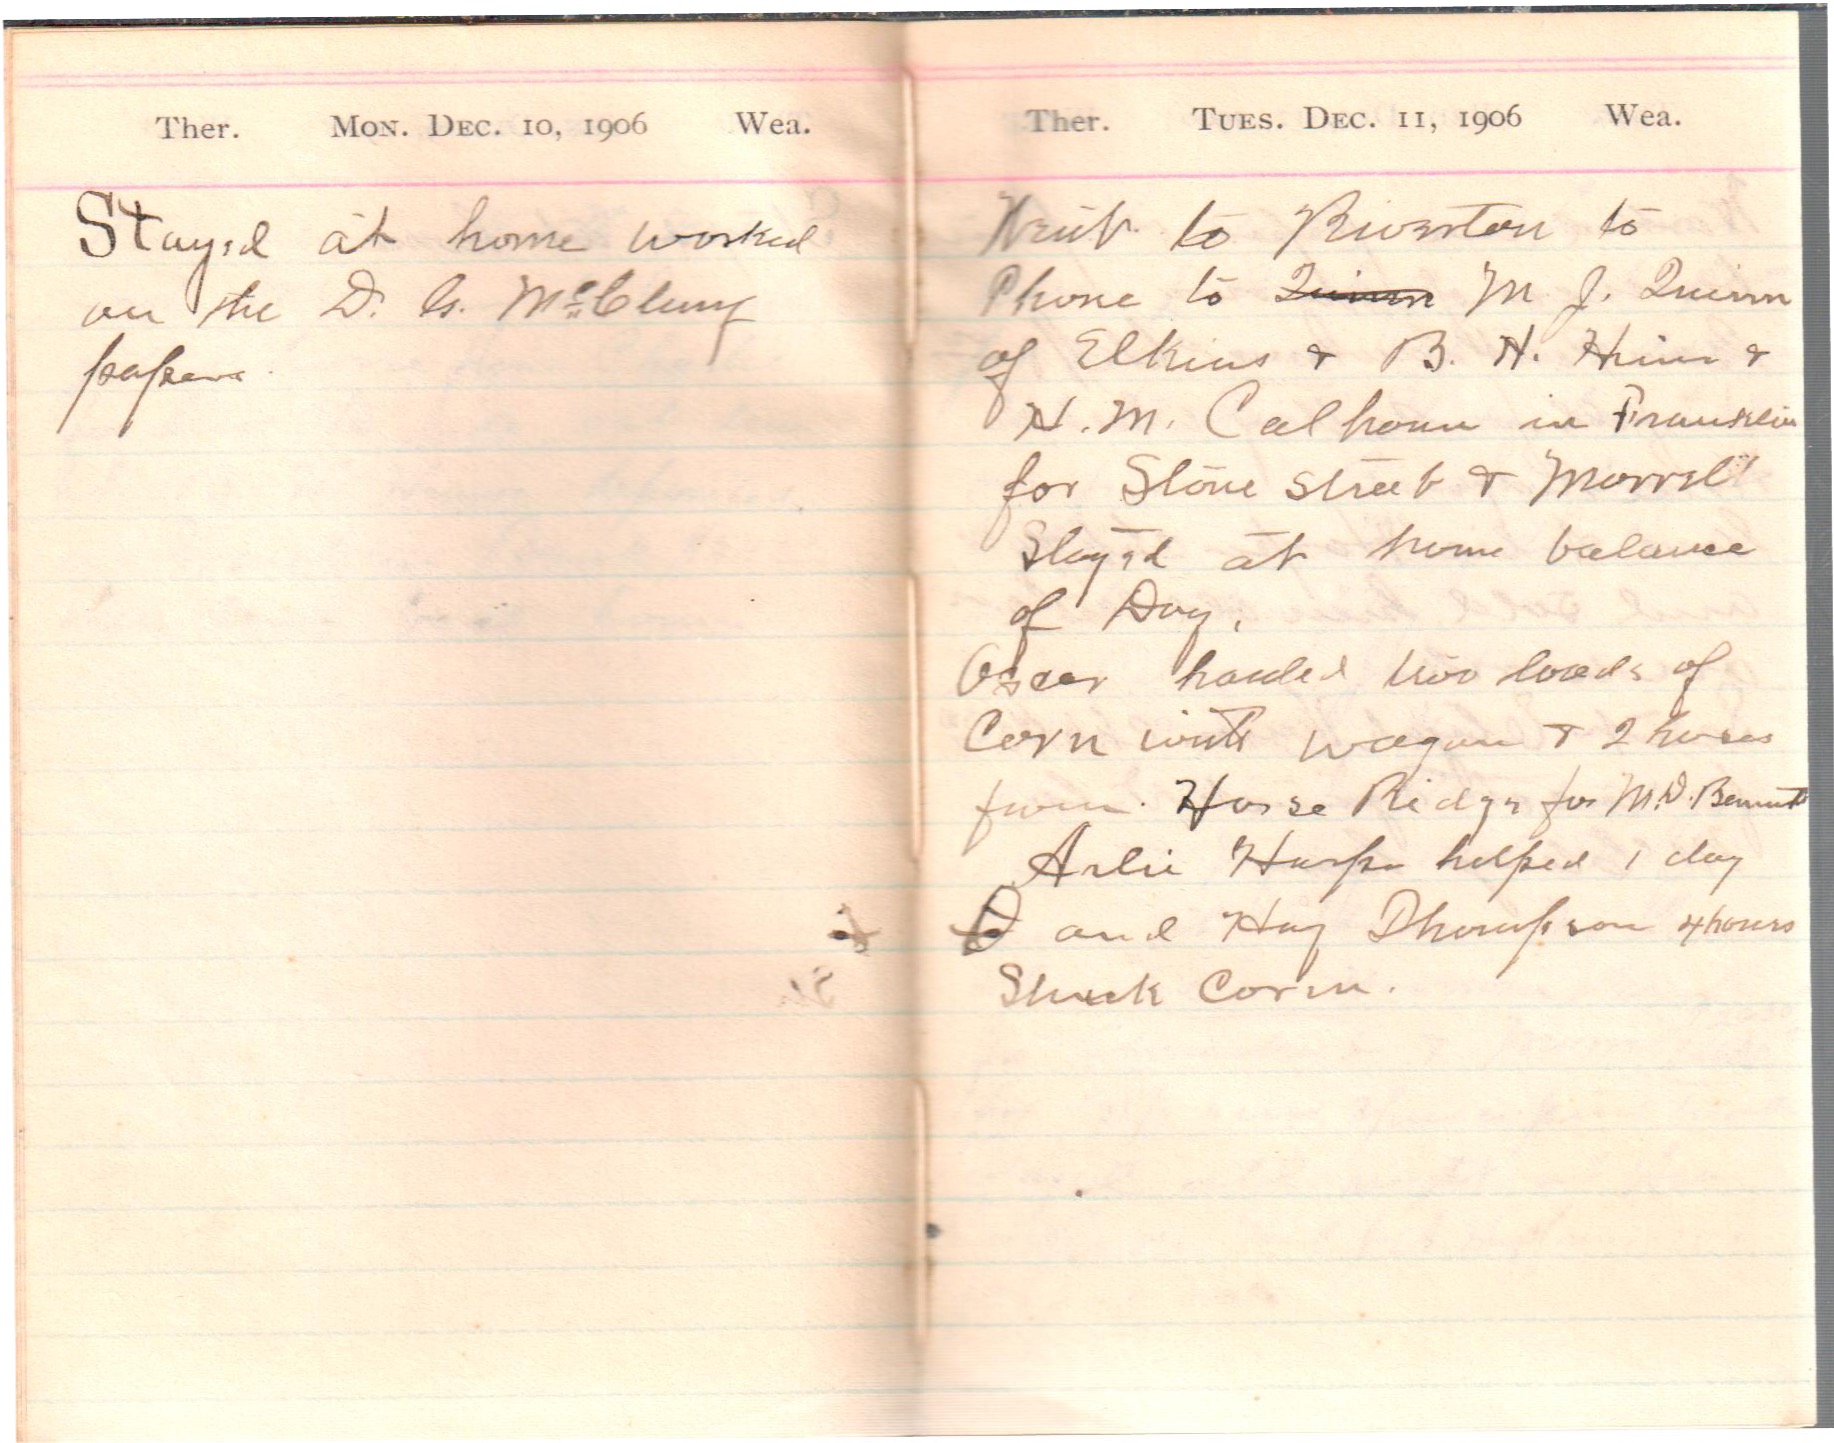 Ther. Mon. Dec. 10, 1906 Wea.
Stayed at home worked
on the D. G. McClung
papers.
Ther. Tues. Dec. 11, 1906 Wea.
Went to Riverton to
Phone to Quinn M. J. Quinn
of Elkins & B. H. &
H. M. Calhoun in Franklin
for Stone Street & Morrell
Stayed at home balance
of Day.
Oscar hauled two loads of
Corn with wagon & 2 horses
from Horse Ridge for M.D. Bennett
Arlie Harper helped 1 day
and Hoy Thompson 4 hours
Shuck Corn.